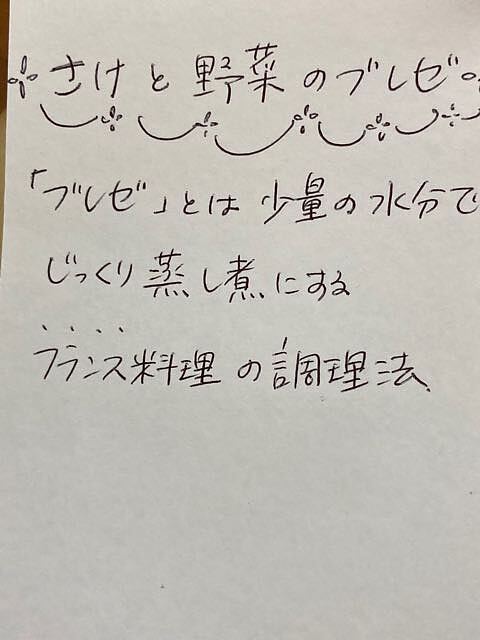 さけと野菜のブレゼ
「ブレゼ」とは少量の水分で
じっくり蒸し煮にする
フランス料理の調理法